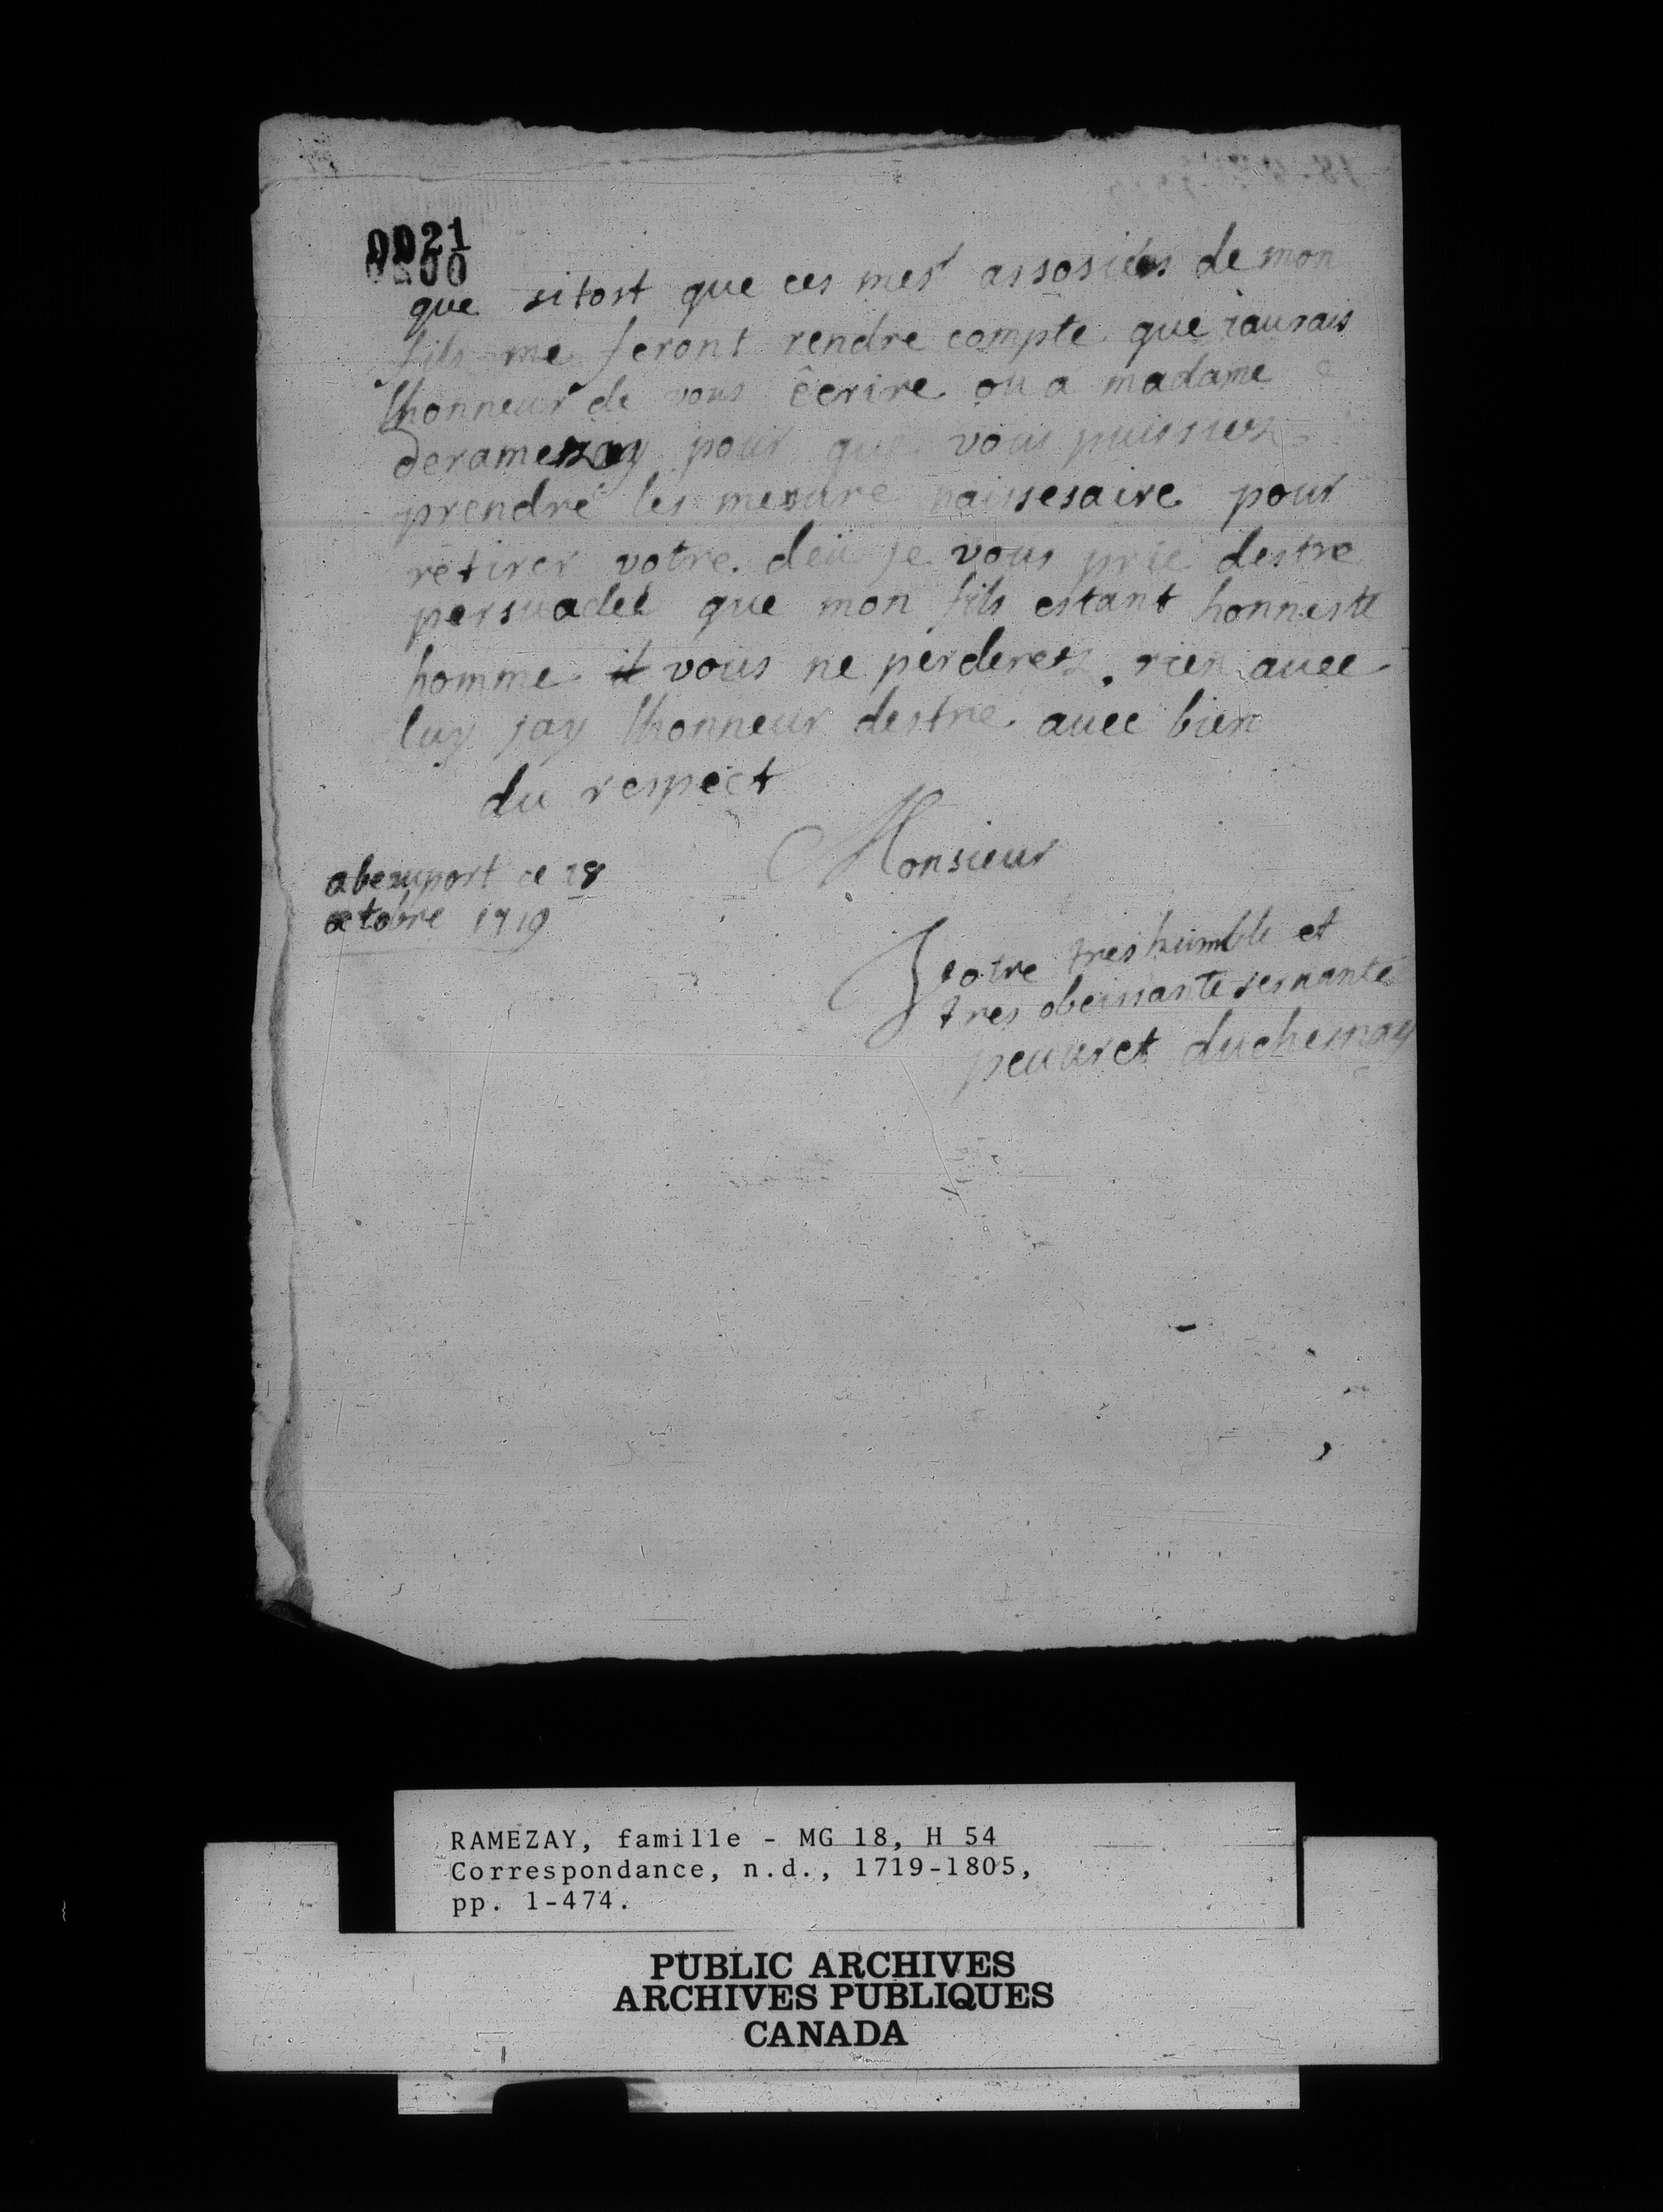 0021
que sitost que ces mesr assosiées de mon
fils me feront rendre compte que iaurais
lhonneur de vous êcrire ou a madame
deramezay pour que vous puissiez
prendre les mesure naissesaire pour
retirer votre deü je vous prie destre
persuadeé que mon fils estant honneste
homme il vous ne perderez rien auec
luy jay lhonneur destre auec bien
du respect
Monsieur
abeauport ce 28
octobre 1719
votre tres humble et
tres obeissante seruante
peuuret duchesnay
RAMEZAY, famille - MG 18, H 54
Correspondance, n.d., 1719-1805,
pp. 1-474.
PUBLIC ARCHIVES
ARCHIVES PUBLIQUES
CANADA